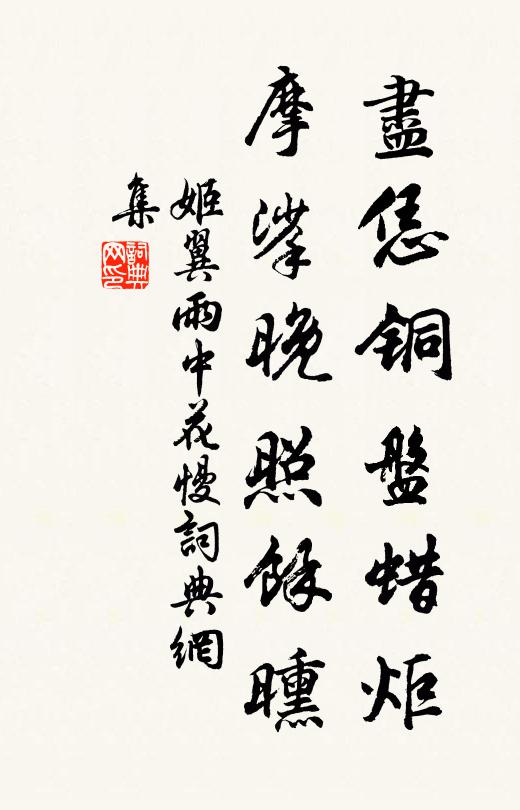 盡恁銅盤蜡炬
摩挲晚照餘曛
姬翼雨中花慢詞典網
集
詞典網印